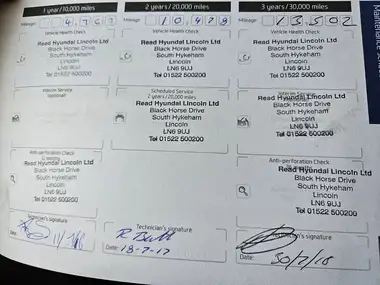 1 year/10,000 miles
2 years/20,000 miles
3 years/30,000 miles
Mileage:
Mileage: 10,478
Mileage: 13,502
Vehicle Health Check
Vehicle Health Check
Vehicle Health Check
Read Hyundai Lincoln Ltd
Black Horse Drive
South Hykeham
Lincoln
LN6 9UJ
Tel 01522 500200
Read Hyundai Lincoln Ltd
Black Horse Drive
South Hykeham
Lincoln
LN6 9UJ
Tel 01522 500200
Read Hyundai Lincoln Ltd
Black Horse Drive
South Hykeham
Lincoln
LN6 9UJ
Tel 01522 500200
Interim Service
(optional)
Scheduled Service
2 years/20,000 miles
Read Hyundai Lincoln Ltd
Black Horse Drive
South Hykeham
Lincoln
LN6 9UJ
Tel 01522 500200
Interim Service
Read Hyundai Lincoln Ltd
Black Horse Drive
South Hykeham
Lincoln
LN6 9UJ
Tel 01522 500200
Anti-perforation Check
Read Hyundai Lincoln Ltd
Black Horse Drive
South Hykeham
Lincoln
LN6 9UJ
Tel 01522 500200
Anti-perforation Check
Read Hyundai Lincoln Ltd
Black Horse Drive
South Hykeham
Lincoln
LN6 9UJ
Tel 01522 500200
Technician's signature
Date:
Technician's signature
Date: 18-7-17
Technician's signature
Date: 30/7/18